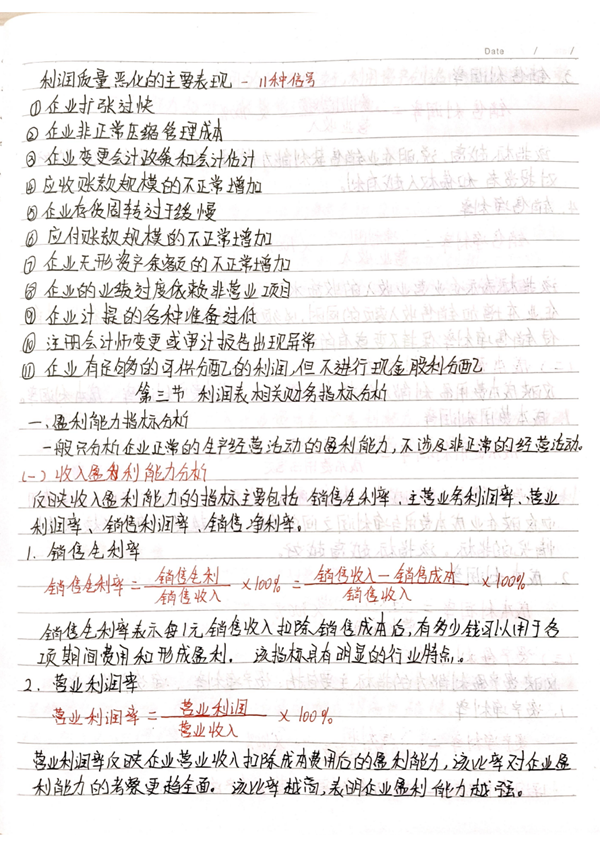 Date / /
利润质量恶化的主要表现 - 11种信号
① 企业扩张过快
② 企业非正常压缩管理成本
③ 企业变更会计政策和会计估计
④ 应收账款规模的不正常增加
⑤ 企业存货周转过于缓慢
⑥ 应付账款规模的不正常增加
⑦ 企业无形资产余额的不正常增加
⑧ 企业的业绩过度依赖非营业项目
⑨ 企业计提的各种准备过低
⑩ 注册会计师变更或审计报告出现异常
⑪ 企业有足够的可供分配的利润,但不进行现金股利分配
第三节 利润表相关财务指标分析
一、盈利能力指标分析
一般只分析企业正常的生产经营活动的盈利能力,不涉及非正常的经营活动。
(一) 收入盈利能力分析
反映收入盈利能力的指标主要包括 销售毛利率、主营业务利润率、营业
利润率、销售利润率、销售净利率。
1. 销售毛利率
销售毛利率 = 销售毛利/销售收入 × 100% = 销售收入-销售成本/销售收入 × 100%
销售毛利率表示每1元销售收入扣除销售成本后,有多少钱可以用于各
项期间费用和形成盈利。 该指标具有明显的行业特点。
2. 营业利润率
营业利润率 = 营业利润/营业收入 × 100%
营业利润率反映企业营业收入扣除成本费用后的盈利能力,该比率对企业盈
利能力的考察更趋全面。 该比率越高,表明企业盈利能力越强。